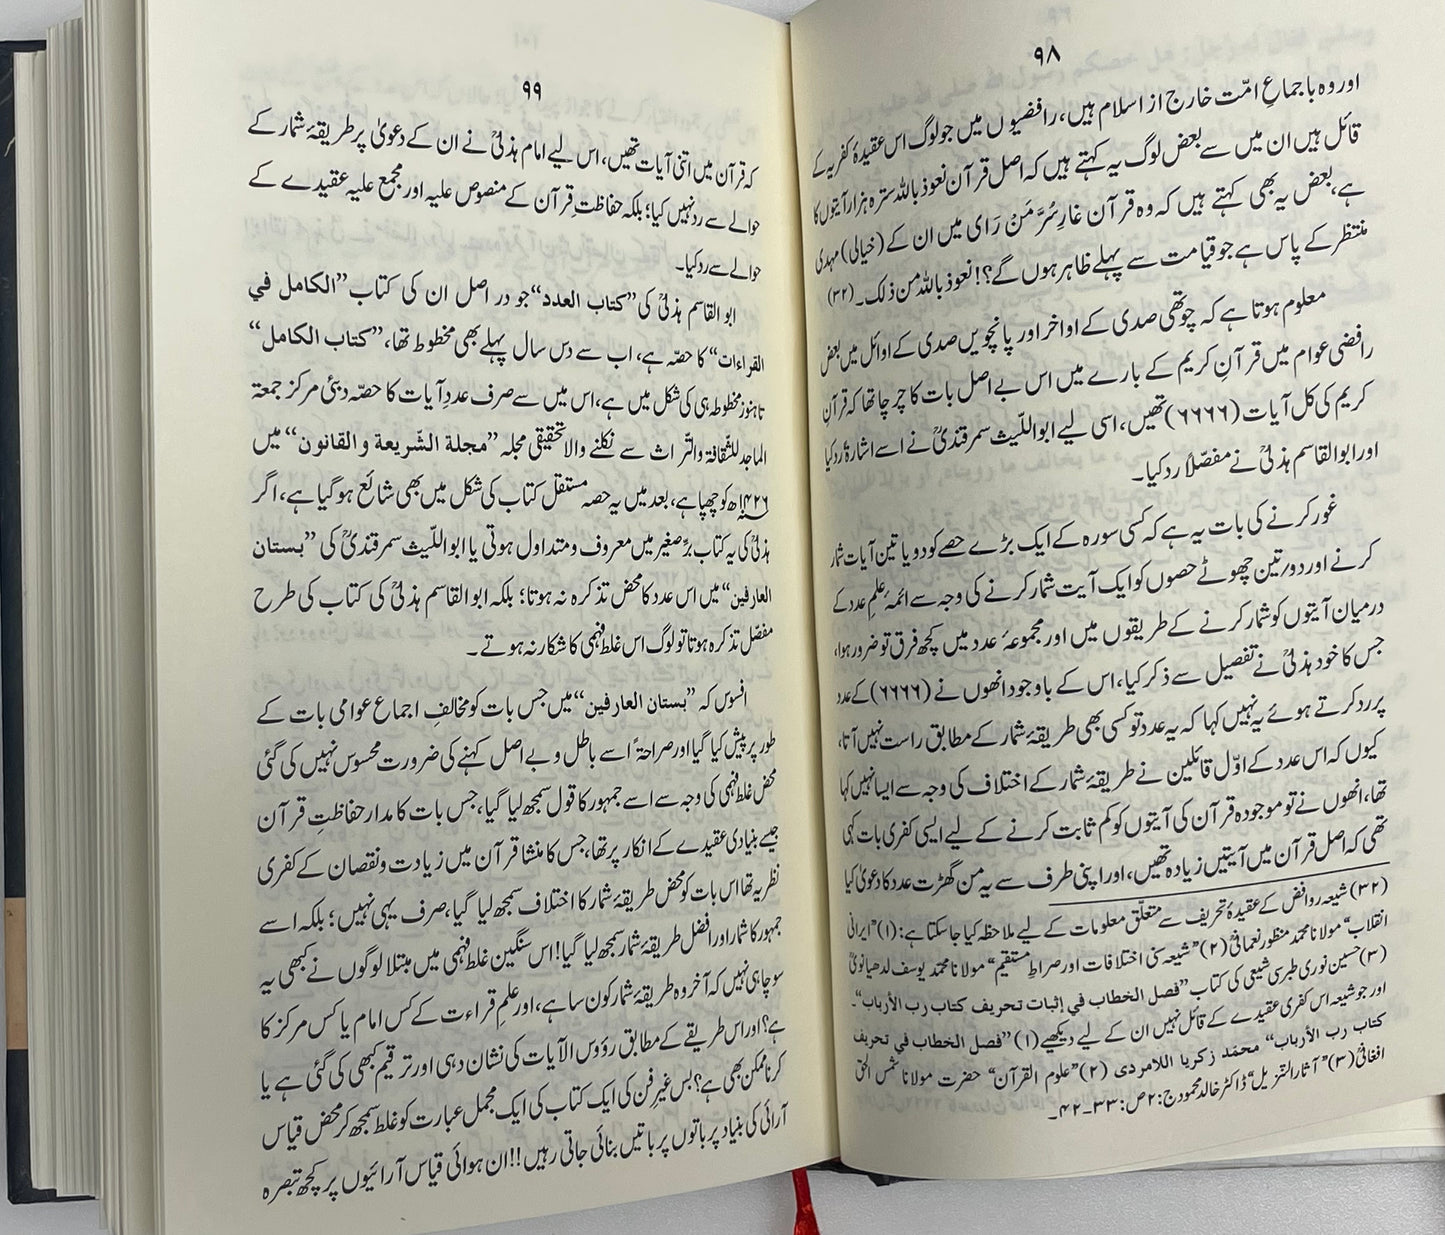 ۹۸
اور وہ باجماعِ امّت خارج از اسلام ہیں، رافضیوں میں جو لوگ اس عقیدۂ کفریہ کے
قائل ہیں ان میں سے بعض لوگ یہ کہتے ہیں کہ اصل قرآن نعوذ باللہ سترہ ہزار آیتوں کا
ہے، بعض یہ بھی کہتے ہیں کہ وہ قرآن غارِ سُرَّ مَنْ رَای میں ان کے (خیالی) مہدی
منتظر کے پاس ہے جو قیامت سے پہلے ظاہر ہوں گے؟! نعوذ باللہ من ذلک۔ (۳۲)
معلوم ہوتا ہے کہ چوتھی صدی کے اواخر اور پانچویں صدی کے اوائل میں بعض
رافضی عوام میں قرآنِ کریم کے بارے میں اس بے اصل بات کا چرچا تھا کہ قرآنِ
کریم کی کل آیات (۶۶۶۶) تھیں، اسی لیے ابواللّیث سمرقندیؒ نے اسے اشارۃً رد کیا
اور ابوالقاسم ہذلیؒ نے مفصّلاً رد کیا۔
غور کرنے کی بات یہ ہے کہ کسی سورہ کے ایک بڑے حصے کو دو یا تین آیات شمار
کرنے اور دو رتین چھوٹے حصوں کو ایک آیت شمار کرنے کی وجہ سے ائمۂ علمِ عدد کے
درمیان آیتوں کو شمار کرنے کے طریقوں میں اور مجموعۂ عدد میں کچھ فرق تو ضرور ہوا،
جس کا خود ہذلیؒ نے تفصیل سے ذکر کیا، اس کے باوجود انھوں نے (۶۶۶۶) کے عدد
پر رد کرتے ہوئے یہ نہیں کہا کہ یہ عدد تو کسی بھی طریقۂ شمار کے مطابق راست نہیں آتا،
کیوں کہ اس عدد کے اوّل قائلین نے طریقۂ شمار کے اختلاف کی وجہ سے ایسا نہیں کہا
تھا، انھوں نے تو موجودہ قرآن کی آیتوں کو کم ثابت کرنے کے لیے ایسی کفری بات کہی
تھی کہ اصل قرآن میں آیتیں زیادہ تھیں، اور اپنی طرف سے یہ من گھڑت عدد کا دعویٰ کیا
(۳۲) شیعہ روافض کے عقیدۂ تحریف سے متعلّق معلومات کے لیے ملاحظہ کیا جا سکتا ہے: (۱) ”ایرانی
انقلاب“ مولانا محمد منظور نعمانیؒ (۲) ”شیعہ سنی اختلافات اور صراطِ مستقیم“ مولانا محمد یوسف لدھیانویؒ
(۳) حسین نوری طبرسی شیعی کی کتاب ”فصل الخطاب في إثبات تحريف كتاب رب الأرباب“۔
اور جو شیعہ اس کفری عقیدے کے قائل نہیں ان کے لیے دیکھیے (۱) ”فصل الخطاب في تحريف
كتاب رب الأرباب“ محمّد زكريا اللامردی (۲) ”علوم القرآن“ حضرت مولانا شمس الحق
افغانیؒ (۳) ”آثار التنزیل“ ڈاکٹر خالد محمود ج: ۲ ص: ۳۳-۴۲۔
۹۹
کہ قرآن میں اتنی آیات تھیں، اس لیے امام ہذلیؒ نے ان کے دعویٰ پر طریقۂ شمار کے
حوالے سے رد نہیں کیا؛ بلکہ حفاظتِ قرآن کے منصوص علیہ اور مجمع علیہ عقیدے کے
حوالے سے رد کیا۔
ابوالقاسم ہذلیؒ کی ”كتاب العدد“ جو در اصل ان کی کتاب ”الكامل في
القراءات“ کا حصّہ ہے، اب سے دس سال پہلے بھی مخطوط تھا، ”كتاب الكامل“
تا ہنوز مخطوطہ ہی کی شکل میں ہے، اس میں سے صرف عددِ آیات کا حصّہ دبئی مرکز جمعۃ
الماجد للثّقافۃ والتّراث سے نکلنے والا تحقیقی مجلہ ”مجلة الشّريعة والقانون“ میں
۱۴۲۶ھ کو چھپا ہے، بعد میں یہ حصہ مستقل کتاب کی شکل میں بھی شائع ہو گیا ہے، اگر
ہذلیؒ کی یہ کتاب برِّ صغیر میں معروف و متداول ہوتی یا ابواللّیث سمرقندیؒ کی ”بستان
العارفين“ میں اس عدد کا محض تذکرہ نہ ہوتا؛ بلکہ ابوالقاسم ہذلیؒ کی کتاب کی طرح
مفصّل تذکرہ ہوتا تو لوگ اس غلط فہمی کا شکار نہ ہوتے۔
افسوس کہ ”بستان العارفين“ میں جس بات کو مخالفِ اجماع عوامی بات کے
طور پر پیش کیا گیا اور صراحۃً اسے باطل و بے اصل کہنے کی ضرورت محسوس نہیں کی گئی
محض غلط فہمی کی وجہ سے اسے جمہور کا قول سمجھ لیا گیا، جس بات کا مدار حفاظتِ قرآن
جیسے بنیادی عقیدے کے انکار پر تھا، جس کا منشا قرآن میں زیادت و نقصان کے کفری
نظریہ تھا اس بات کو محض طریقۂ شمار کا اختلاف سمجھ لیا گیا، صرف یہی نہیں؛ بلکہ اسے
جمہور کا شمار اور افضل طریقۂ شمار سمجھ لیا گیا! اس سنگین غلط فہمی میں مبتلا لوگوں نے کبھی یہ
سوچا ہی نہیں کہ آخر وہ طریقۂ شمار کون سا ہے، اور علمِ قراءت کے کس امام یا کس مرکز کا
ہے؟ اور اس طریقے کے مطابق رؤوس الآیات کی نشان دہی اور ترقیم کبھی کی گئی ہے یا
کرنا ممکن بھی ہے؟ بس غیرِ فن کی ایک کتاب کی ایک مجمل عبارت کو غلط سمجھ کر محض قیاس
آرائی کی بنیاد پر باتوں پر باتیں بنائی جاتی رہیں!! ان ہوائی قیاس آرائیوں پر کچھ تبصرہ